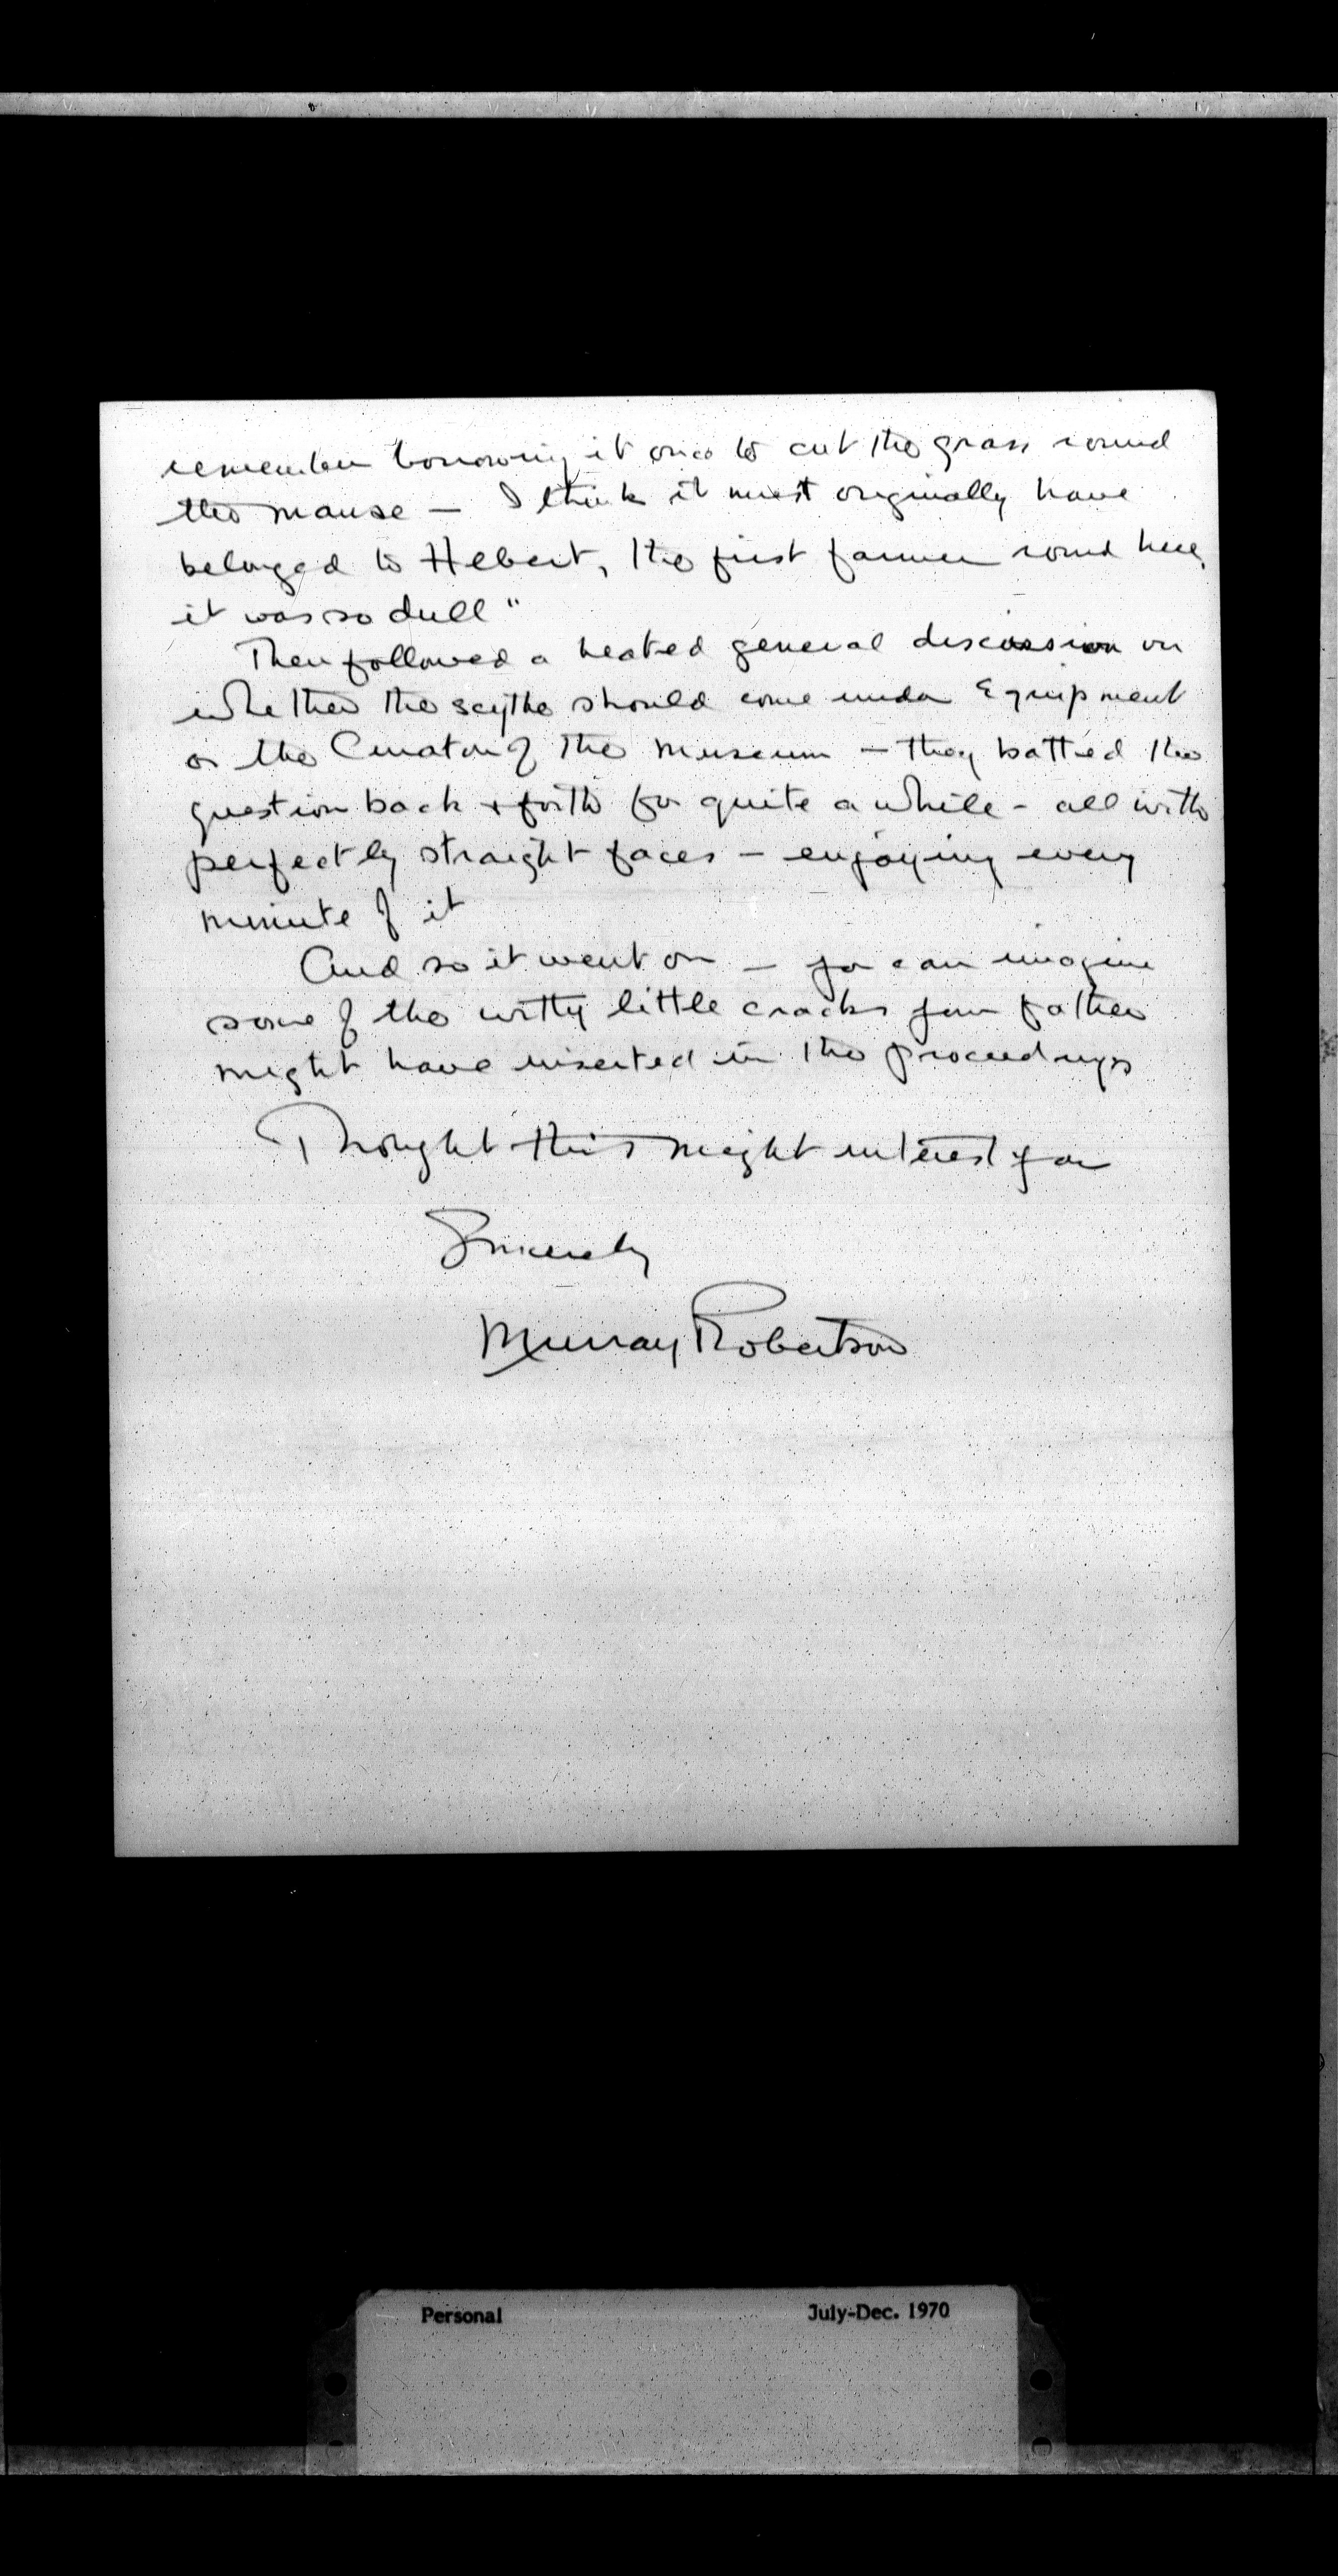 remember borrowing it once to cut the grass round
the manse — I think it must originally have
belonged to Hebert, the first farmer round here,
it was so dull"
Then followed a heated general discussion on
whether the scythe should come under Equipment
or the Curator of the Museum — they batted the
question back & forth for quite a while - all with
perfectly straight faces — enjoying every
minute of it
And so it went on — you can imagine
some of the witty little cracks your father
might have inserted in the proceedings
Thought this might interest you
Sincerely
Murray Robertson
Personal July-Dec. 1970